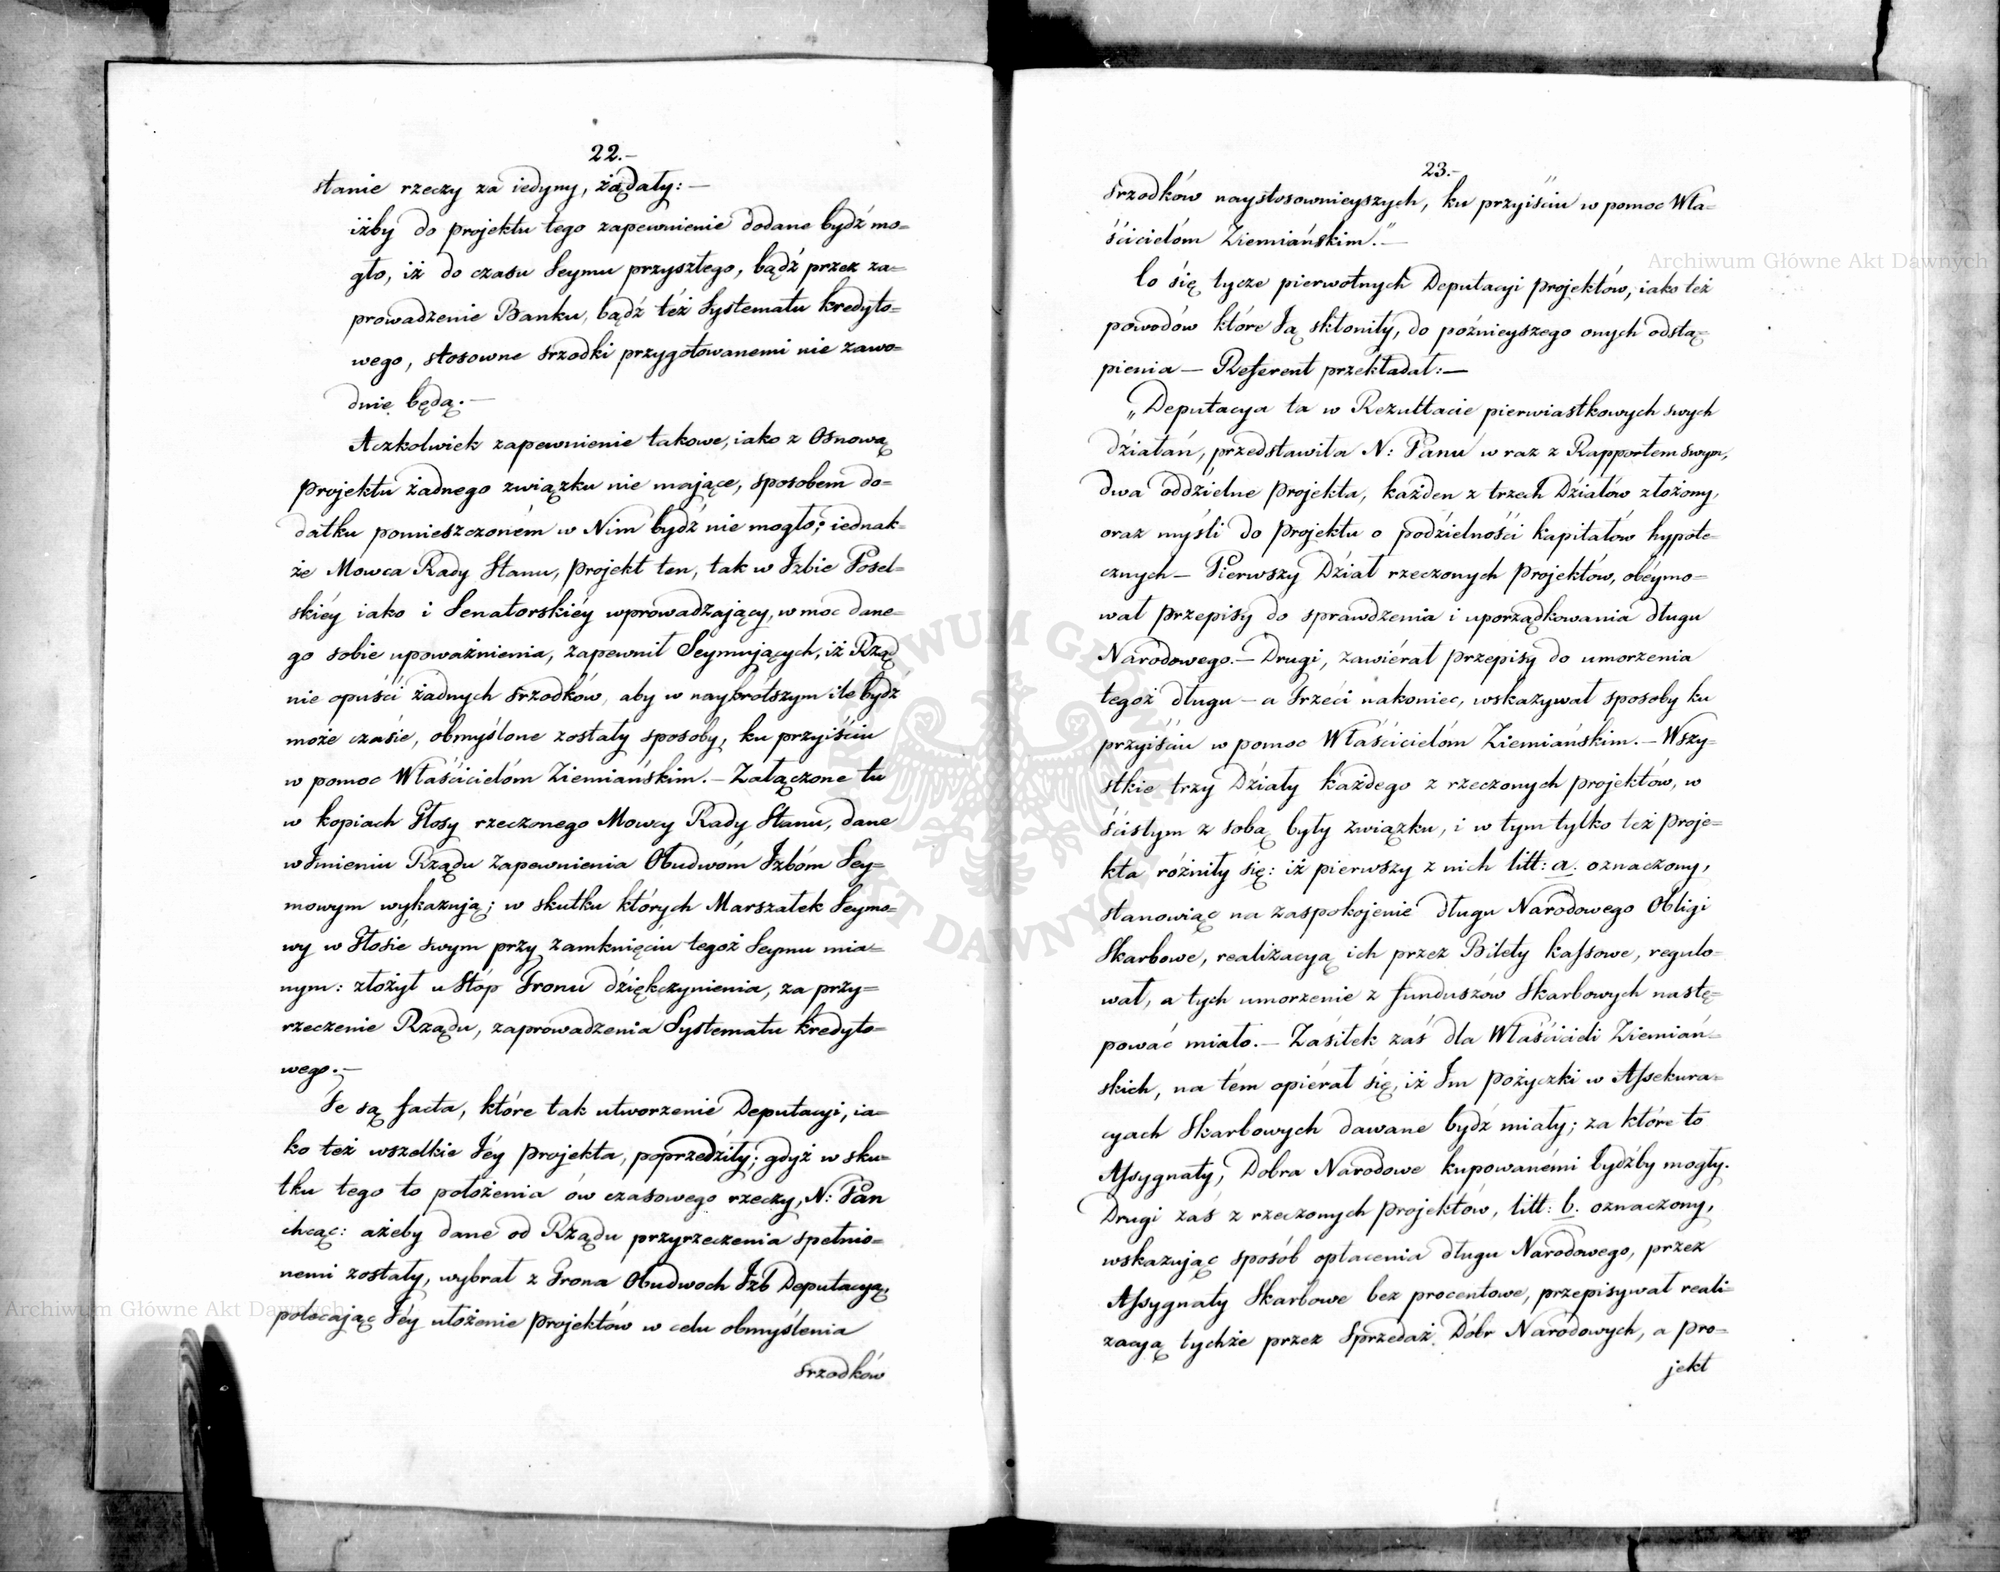 22.—
stanie rzeczy za iedyny, żądały: —
iżby do projektu tego zapewnienie dodane bydź mo=
gło, iż do czasu Seymu przyszłego, bądź przez za=
prowadzenie Banku, bądź też Systematu kredyto=
wego, stosowne srzodki przygotowanemi nie zawo=
dnie będą. —
Aczkolwiek zapewnienie takowe, iako z Osnową
Projektu żadnego związku nie mające, sposobem do=
datku pomieszczoném w Nim bydź nie mogło; iednak=
że Mowca Rady Stanu, Projekt ten, tak w Izbie Posel=
skiéy iako i Senatorskiéy wprowadzający, w moc dane=
go sobie upoważnienia, zapewnił Seymujących, iż Rząd
nie opuści żadnych srzodków, aby w naykrótszym ile bydź
może czasie, obmyślone zostały sposoby, ku przyiściu
w pomoc Właścicielóm Ziemiańskim. — Załączone tu
w kopiach Głosy rzeczonego Mowcy Rady Stanu, dane
w Imieniu Rządu zapewnienia Obudwóm Izbóm Sey=
mowym wykazują; w skutku których Marszałek Seymo=
wy w Głosie swym przy zamknięciu tegoż Seymu mia=
nym: złożył u Stóp Tronu dziękczynienia, za przy=
rzeczenie Rządu, zaprowadzenia Systematu kredyto=
wego. —
Te są facta, które tak utworzenie Deputacyi, ia=
ko też wszelkie Jéy Projekta, poprzedziły; gdyż w sku=
tku tego to położenia ów czasowego rzeczy, N: Pan
chcąc: ażeby dane od Rządu przyrzeczenia spełnio=
nemi zostały, wybrał z Grona Obudwoch Izb Deputacyą,
polecając Jéy ułożenie Projektów w celu obmyślenia
srzodków
23.—
srzodków naystosownieyszych, ku przyiściu w pomoc Wła=
ścicielóm Ziemiańskim." —
Co się tycze pierwotnych Deputacyi Projektów, iako też
powodów które Ją skłoniły, do poźnieyszego onych odstą=
pienia — Referent przekładał: —
„Deputacya ta w Rezultacie pierwiastkowych swych
działań, przedstawiła N: Panu w raz z Rapportem swym,
dwa oddzielne Projekta, każden z trzech Działów złożony,
oraz myśli do Projektu o podzielności kapitałów hypote=
cznych — Pierwszy Dział rzeczonych Projektów, obéymo=
wał Przepisy do sprawdzenia i uporządkowania długu
Narodowego. — Drugi, zawiérał Przepisy do umorzenia
tegoż długu — a Trzeci nakoniec, wskazywał sposoby ku
przyiściu w pomoc Właścicielóm Ziemiańskim. — Wszy=
stkie trzy Działy każdego z rzeczonych Projektów, w
ścisłym z sobą były związku, i w tym tylko też Proje=
kta różniły się: iż pierwszy z nich litt: a. oznaczony,
stanowiąc na zaspokojenie długu Narodowego Obligi
Skarbowe, realizacyą ich przez Bilety kassowe, regulo=
wał, a tych umorzenie z funduszów Skarbowych nastę=
pować miało. — Zasiłek zaś dla Właścicieli Ziemiań=
skich, na tém opiérał się, iż Im pożyczki w Assekura=
cyach Skarbowych dawane bydź miały; za które to
Assygnaty, Dobra Narodowe kupowanémi bydźby mogły.
Drugi zaś z rzeczonych Projektów, litt: b. oznaczony,
wskazując sposób opłacenia długu Narodowego, przez
Assygnaty Skarbowe bez procentowe, przepisywał reali=
zacyą tychże przez Sprzedaż Dóbr Narodowych, a Pro=
jekt
Archiwum Główne Akt Dawnych
Archiwum Główne Akt Dawnych
ARCHIWUM GŁÓWNE AKT DAWNYCH